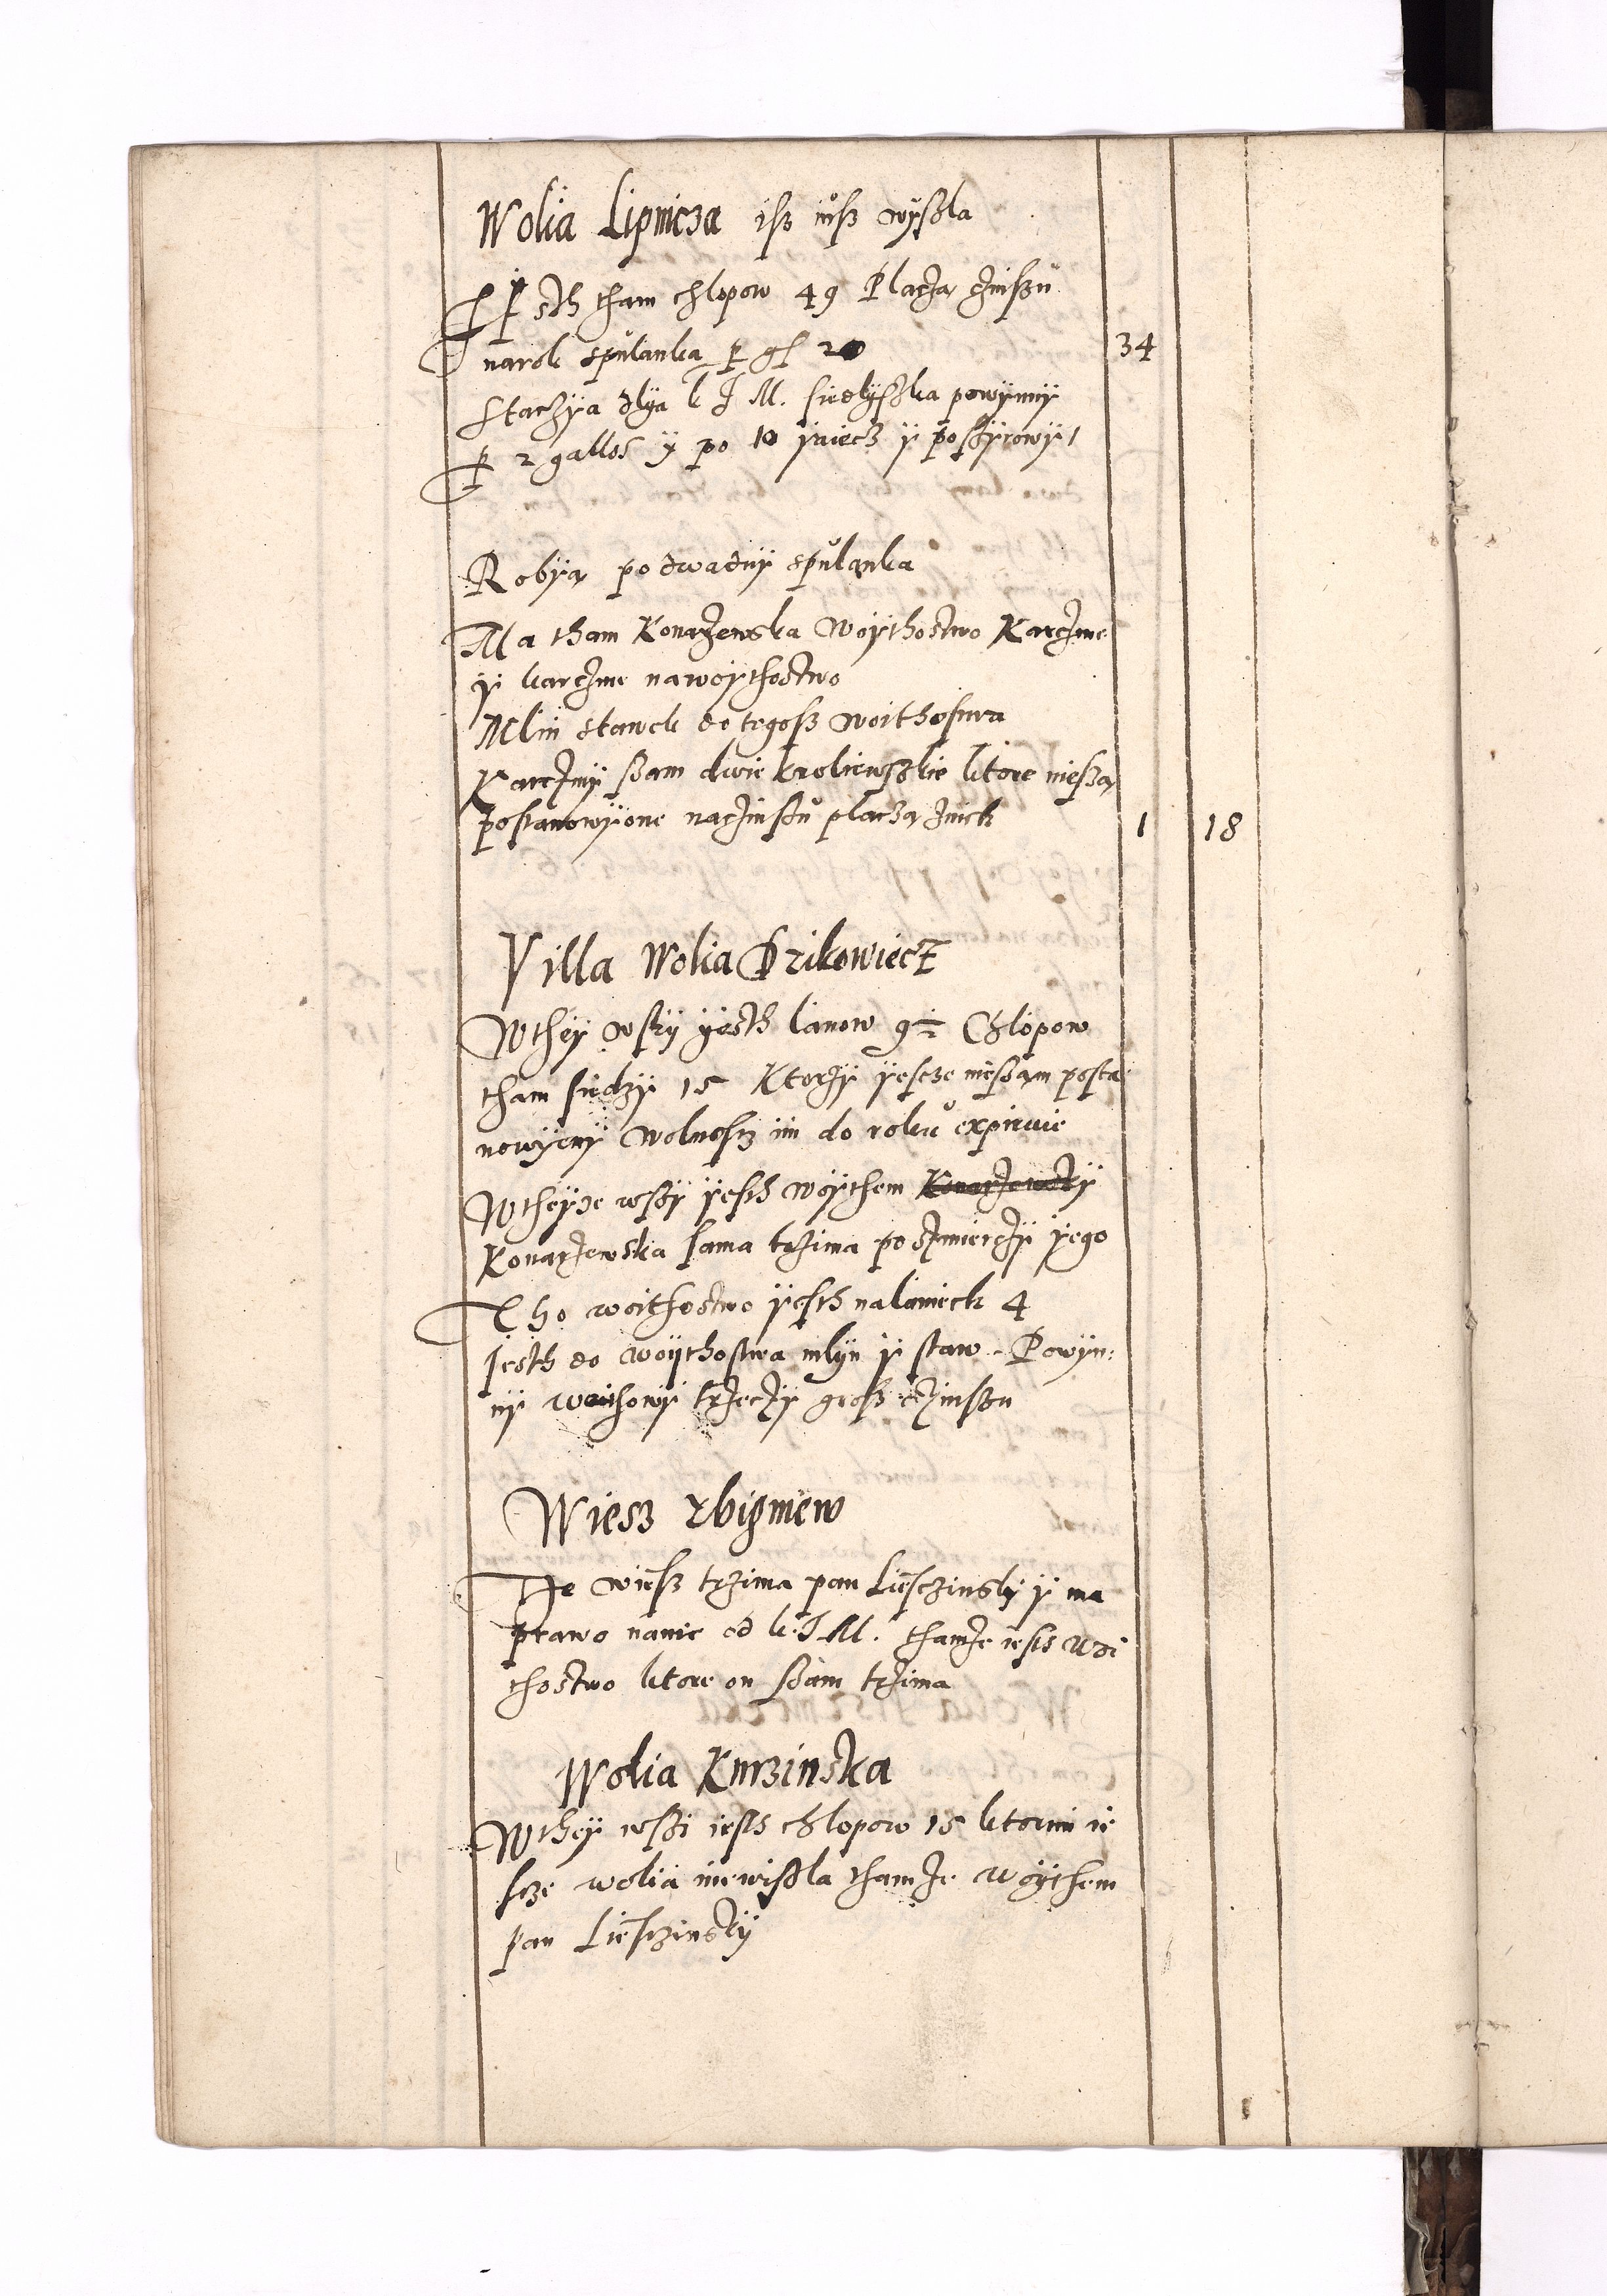 Wolia Lipnicza isz iusz wyszla
Jesth tham chlopow 49 Placza czinszu
narok spulanka p gs 20 34
Staczya dlya k J M. powynny
p 2 gallos y po 10 yaiecz y po szyrowy 1
Robya po dwa dny spulanka
Ma tham Konarzewska Woythostwo Karczme
y karczme nawoythostwo
Mlin stawek do tegosz woithostwa
Karczmy szam dwie kroliewszkie ktore niesza
postanowyone naczinszu placza znich 1 18
Villa Wolia Drikowiecz
Wthey wszy yesth lanow 9 Chlopow
tham siedzy 15 Ktorzy yescze nieszam posta
nowyeny Wolnosz im do roku expiruie
Wtheyze wszy yesth woythem Konarzewsky
Konarzewska sama trzima po szmierczy yego
Tho woithostwo yesth nalaniech 4
Jesth do woythostwa mlyn y staw. Powyn:
ny woithowy trzeczy grosz czinszu
Wiesz Zbigniew
Te wiesz trzima pan Liesczinsky y ma
prawo nanie od k. J M. thamze iesth woi
thostwo ktore on szam trzima
Wolia Kurzinska
Wthey wszi iesth chlopow 15 ktorim ie
scze wolia niewiszla thamze Woythem
pan Liesczinsky